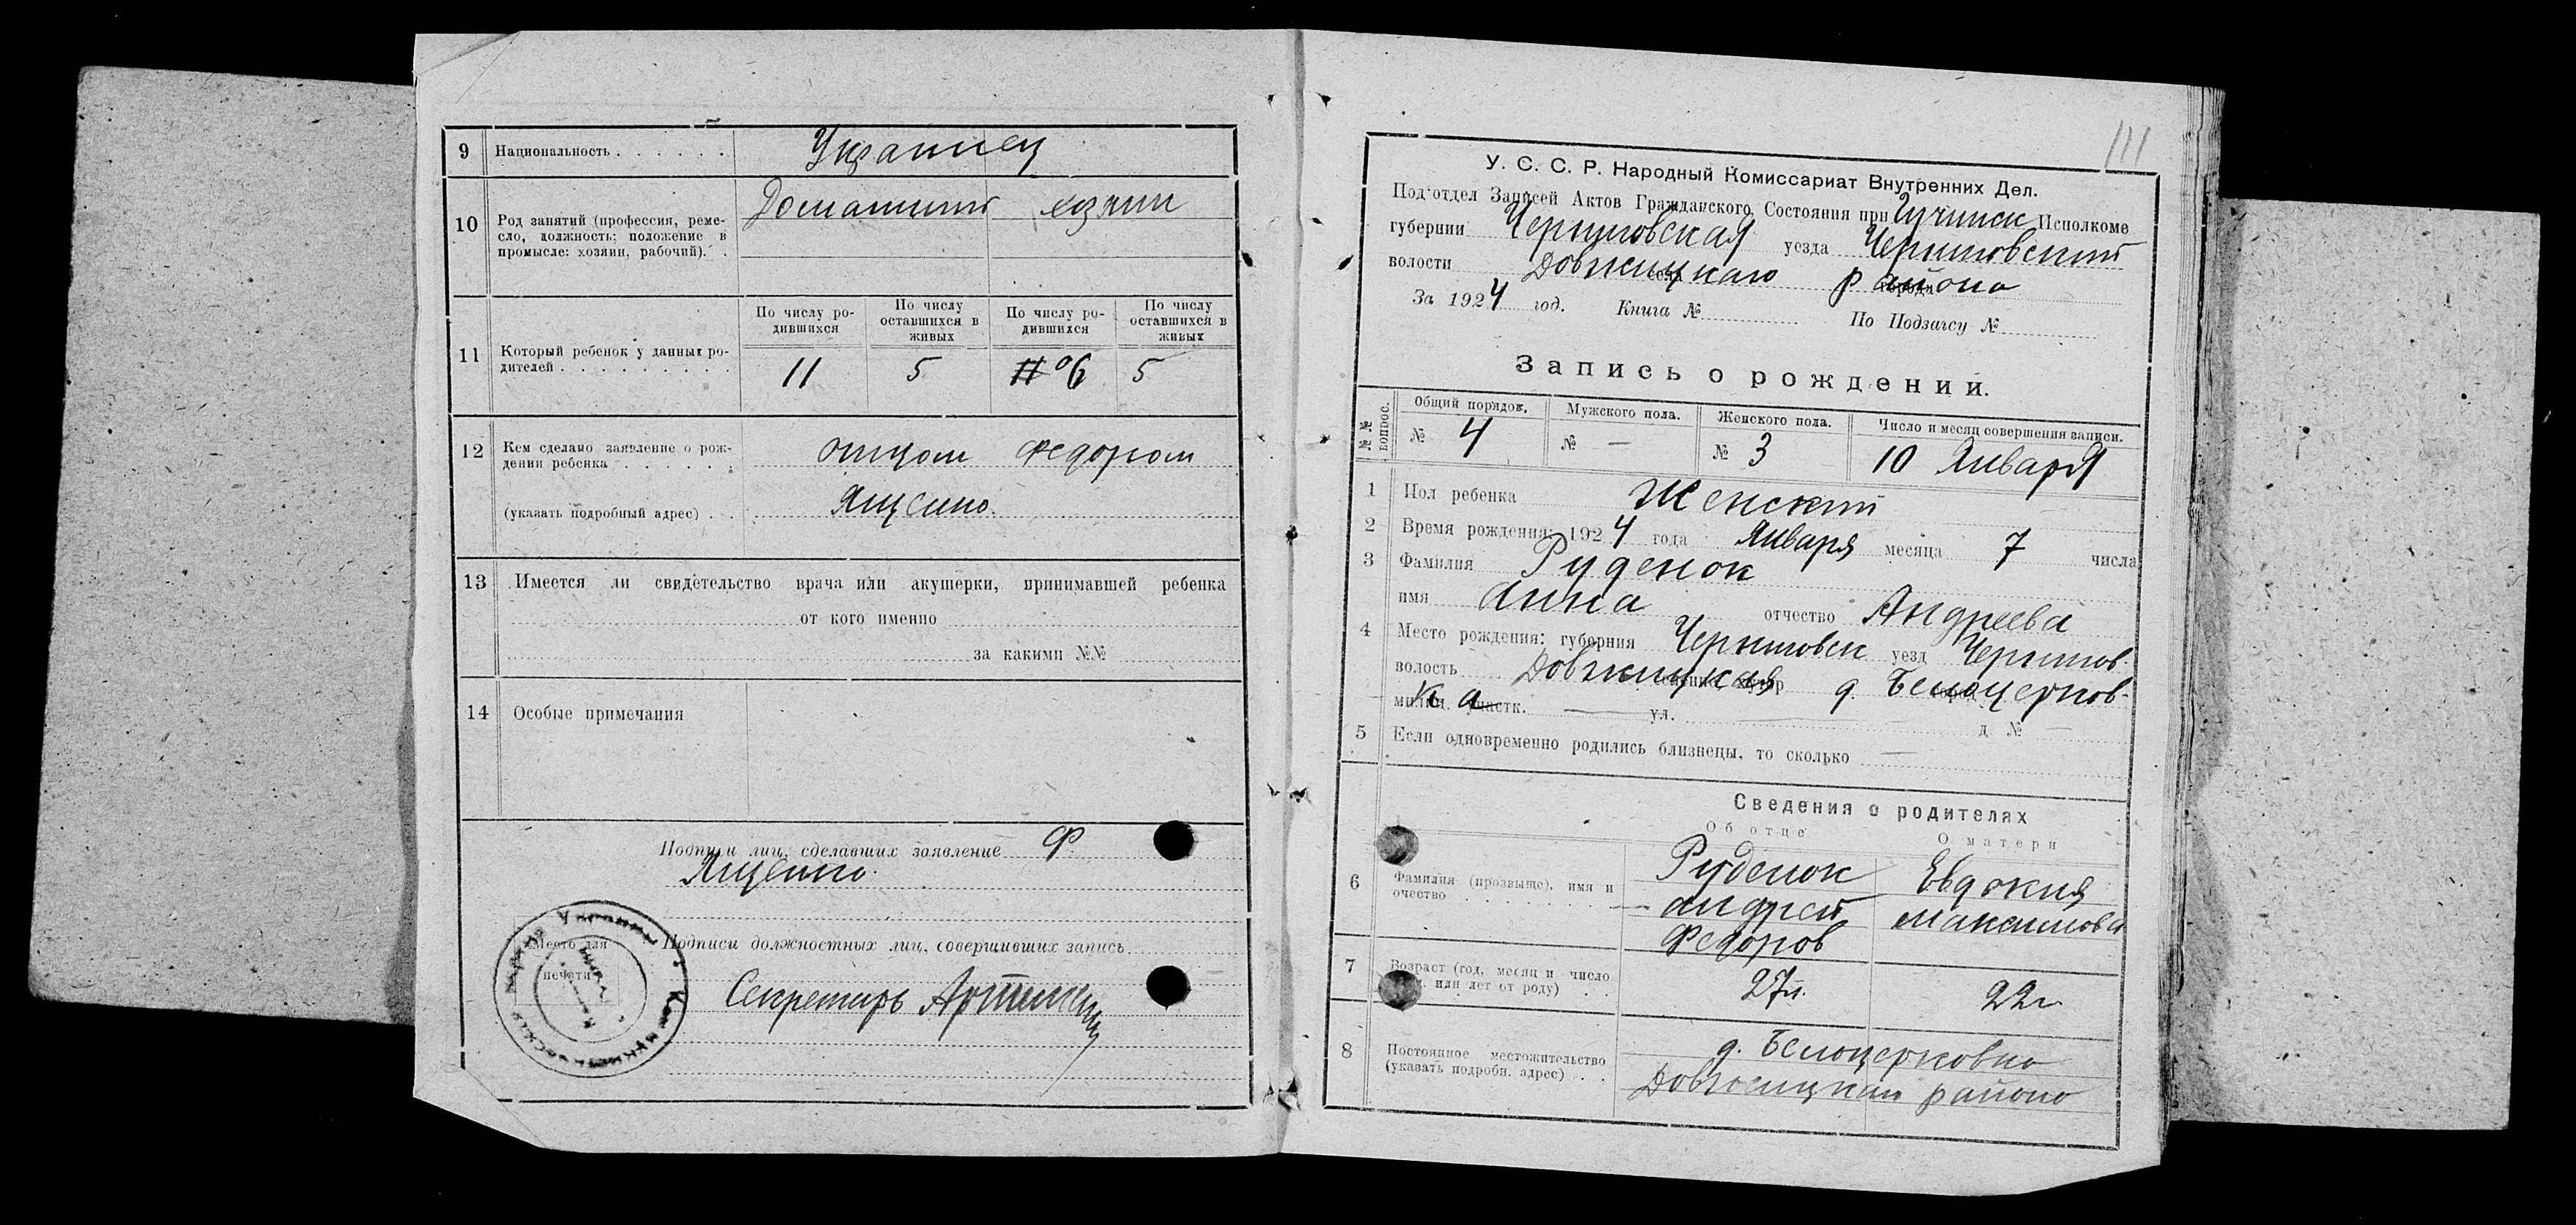 9 Национальность . . . . . . Украинец
10 Род занятий (профессия, реме-
сло, должность; положение в
промысле: хозяин, рабочий). .
Домашний хозяин
По числу ро-
дившихся
По числу
оставшихся в
живых
По числу ро-
дившихся
По числу
оставшихся в
живых
11 Который ребенок у данных ро-
дителей . . . . . . . . .
11 5 6 5
12 Кем сделано заявление о рож-
дении ребенка . . . . . . .
отцом Федором
(указать подробный адрес) . .
Ященко.
13 Имеется ли свидетельство врача или акушерки, принимавшей ребенка
от кого именно
за какими №№
14 Особые примечания
Подписи лиц, сделавших заявление Ф
Ященко.
Место для
печати
Подписи должностных лиц, совершивших запись
Секретарь
111
У. С. С. Р. Народный Комиссариат Внутренних Дел.
Под'отдел Записей Актов Гражданского Состояния при Исполкоме
губернии Черниговская уезда Черниговский
волости Довжицкаго района
За 1924 год. Книга № По Подзагсу №
Запись о рождении.
№№ вопрос.
Общий порядок. Мужского пола. Женского пола. Число и месяц совершения записи.
№ 4 № — № 3 10 Января
1 Пол ребенка Женский
2 Время рождения: 1924 года Января месяца 7 числа
3 Фамилия Руденок
имя Анна отчество Андреева
4 Место рождения: губерния Черниговск уезд Чернигов.
волость Довжицкая д. Белоцерков-
ка
милиц. участк. — ул. — д № —
5 Если одновременно родились близнецы, то сколько —
Сведения о родителях
Об отце О матери
6 Фамилия (прозвище), имя и
очество . . . . . . . .
Руденок
Андрей
Федоров
Евдокия
Максимова
7 Возраст (год, месяц и число
или лет от роду) . .
27л. 22г.
8 Постоянное местожительство
(указать подробн. адрес) . .
д. Белоцерковка
Довжицкаи района